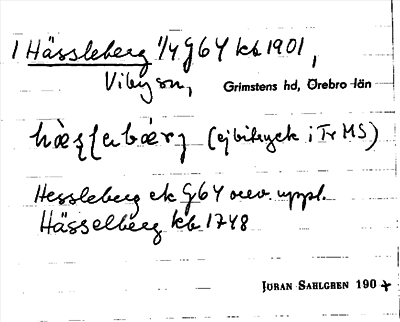 1 Hässleberg 1/4 G64 kb 1901,
Viby sn, Grimstens hd, Örebro län
(ej bitryck i Tr MS)
Hessleberg ek G64 orev. uppl.
Hässelberg kb 1748
JÖRAN SAHLGREN 190